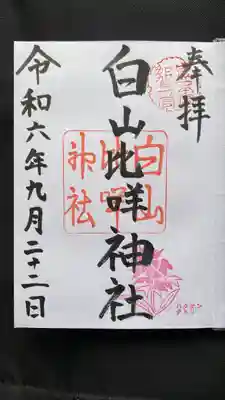 奉拝
白山比咩神社
白山比咩神社
令和六年九月二十二日